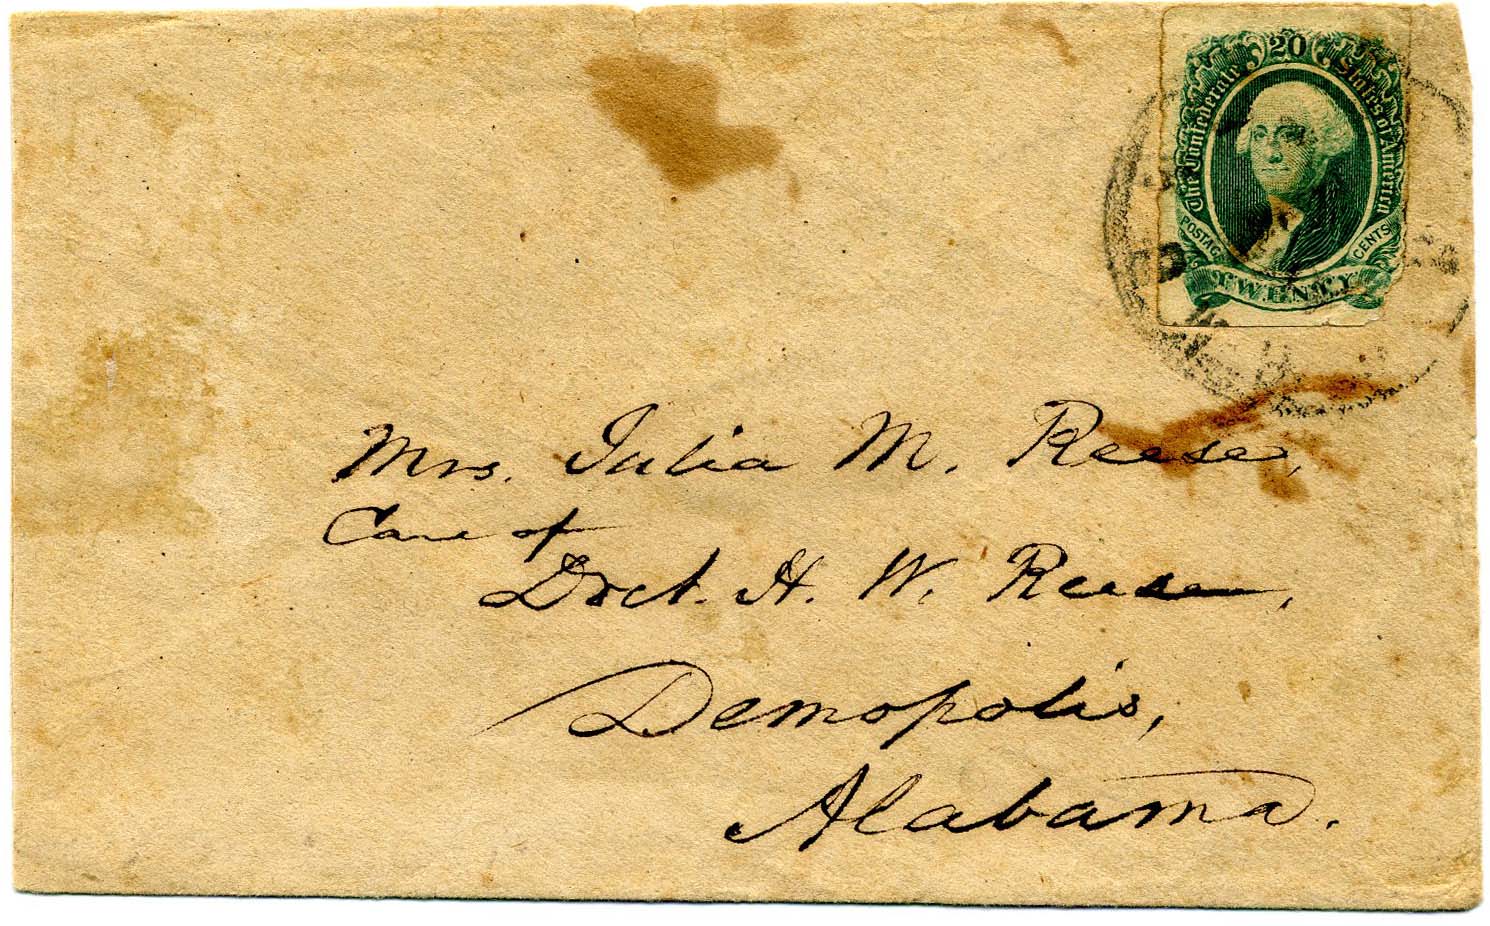 20
The Confederate States of America
POSTAGE CENTS
TWENTY
Mrs. Julia M. Reese,
Care of
Doct. H. W. Reese,
Demopolis,
Alabama.